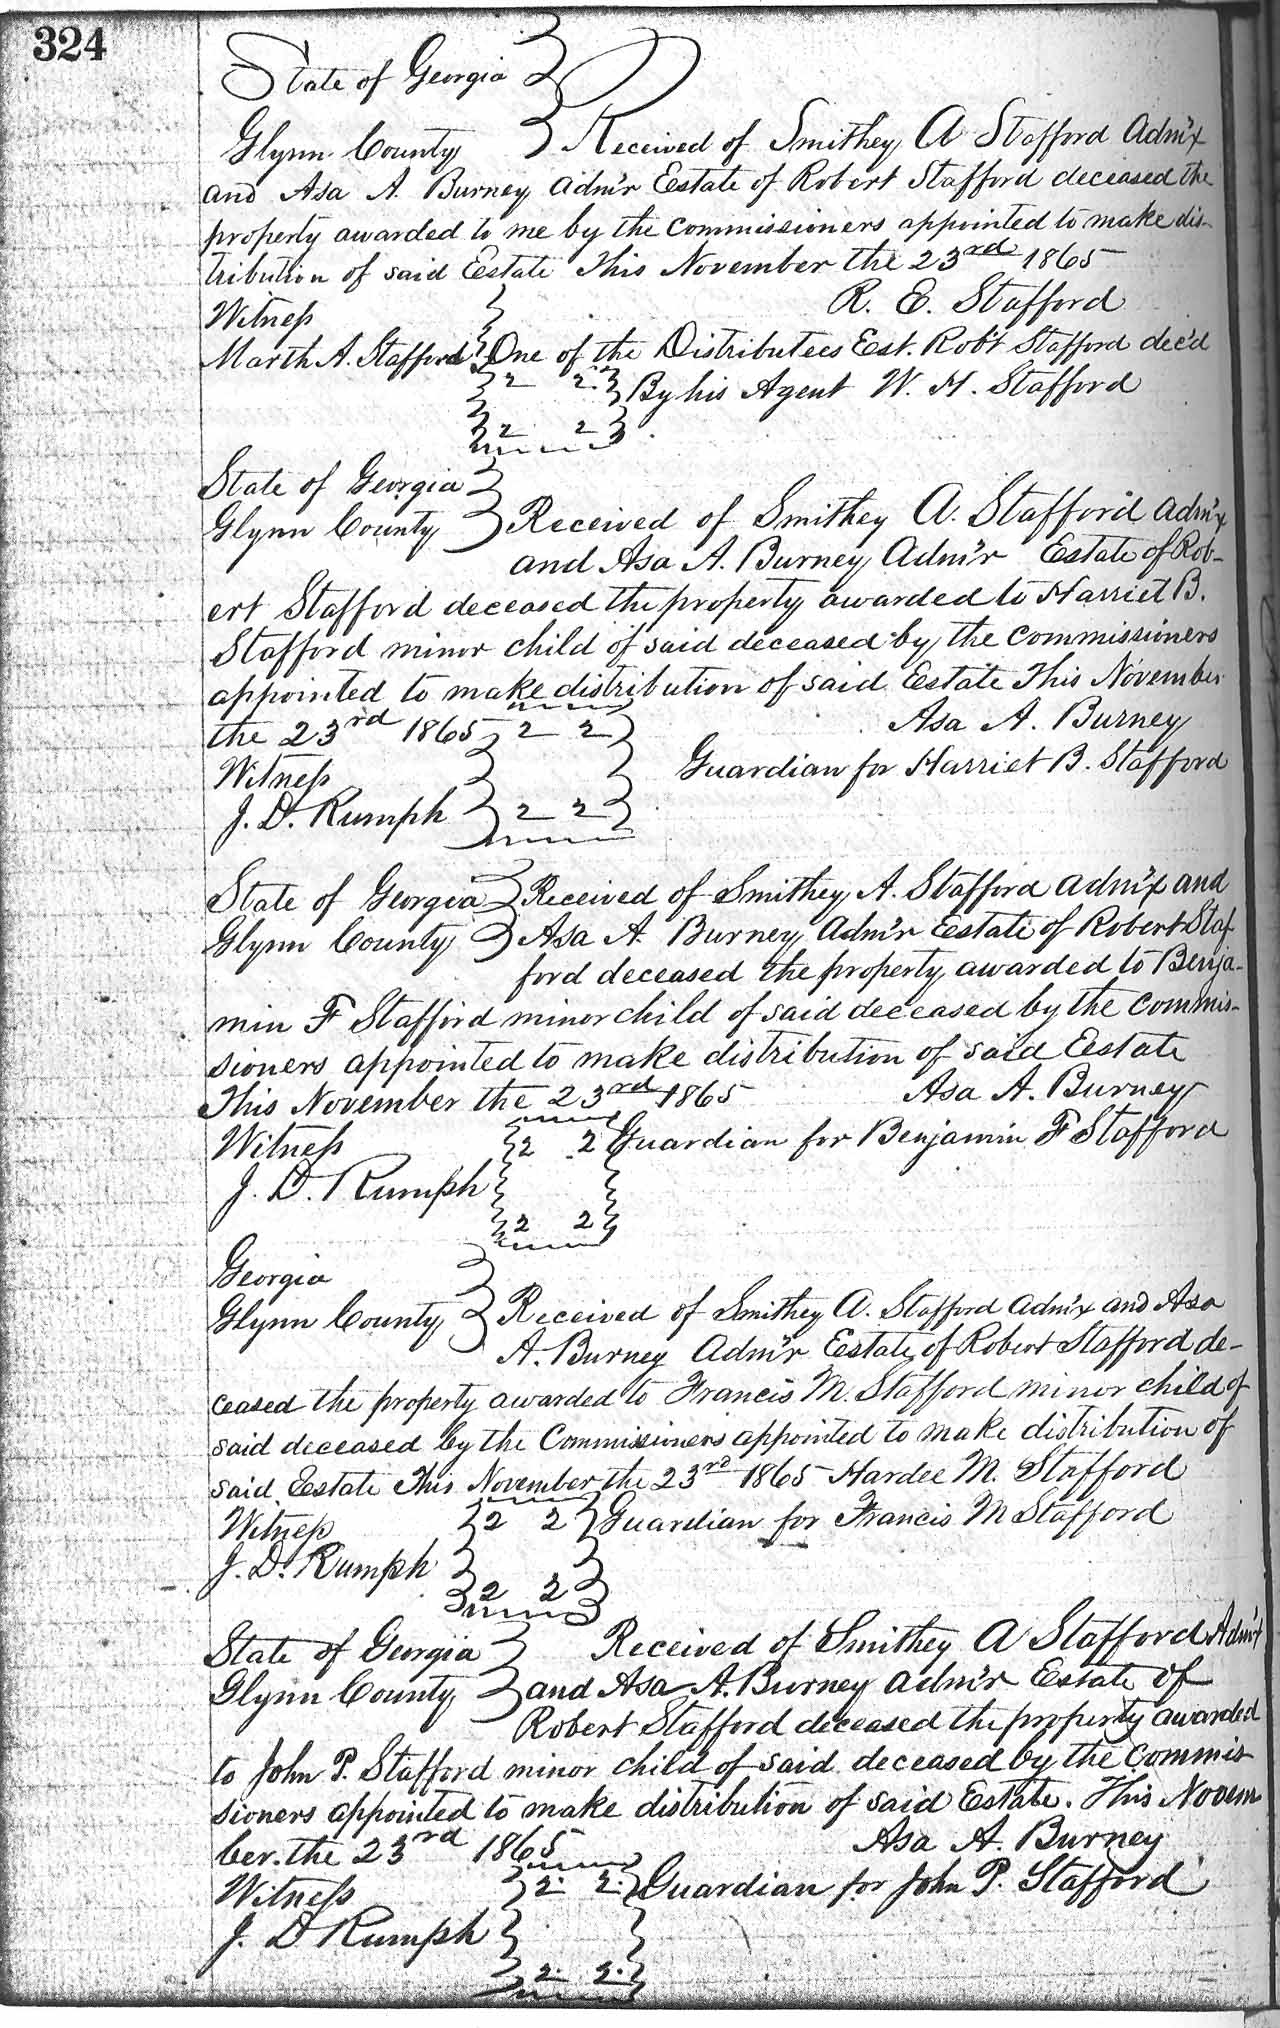 324
State of Georgia
Glynn County Received of Smithey A Stafford Adm'x
and Asa A. Burney Adm'r Estate of Robert Stafford deceased the
property awarded to me by the commissioners appointed to make dis-
tribution of said Estate This November the 23rd 1865
Witness R. E. Stafford
Marth A. Stafford One of the Distributees Est. Rob't Stafford dec'd
2 2 By his Agent W. H. Stafford
2 2
State of Georgia
Glynn County Received of Smithey A. Stafford adm'x
and Asa A. Burney Adm'r Estate of Rob-
ert Stafford deceased the property awarded to Harriet B.
Stafford minor child of said deceased by the commissioners
appointed to make distribution of said Estate This November
the 23rd 1865 2 2 Asa A. Burney
Witness Guardian for Harriet B. Stafford
J. D. Rumph 2 2
State of Georgia Received of Smithey A. Stafford adm'x and
Glynn County Asa A. Burney Adm'r Estate of Robert Staf
ford deceased the property awarded to Benja-
min F Stafford minor child of said deceased by the commis-
sioners appointed to make distribution of said Estate
This November the 23rd 1865 Asa A. Burney
Witness 2 2 Guardian for Benjamin F Stafford
J. D. Rumph
2 2
Georgia
Glynn County Received of Smithey A. Stafford adm'x and Asa
A. Burney Adm'r Estate of Robert Stafford de-
ceased the property awarded to Francis M. Stafford minor child of
said deceased by the Commissioners appointed to make distribution of
said Estate This November the 23rd 1865 Hardee M. Stafford
Witness 2 2 Guardian for Francis M Stafford
J. D. Rumph
2 2
State of Georgia Received of Smithey A Stafford Adm'x
Glynn County and Asa A. Burney adm'r Estate of
Robert Stafford deceased the property awarded
to John P. Stafford minor child of said deceased by the commis
sioners appointed to make distribution of said Estate. This Novem
ber the 23rd 1865 Asa A. Burney
Witness 2. 2. Guardian for John P. Stafford
J. D Rumph
2. 2.